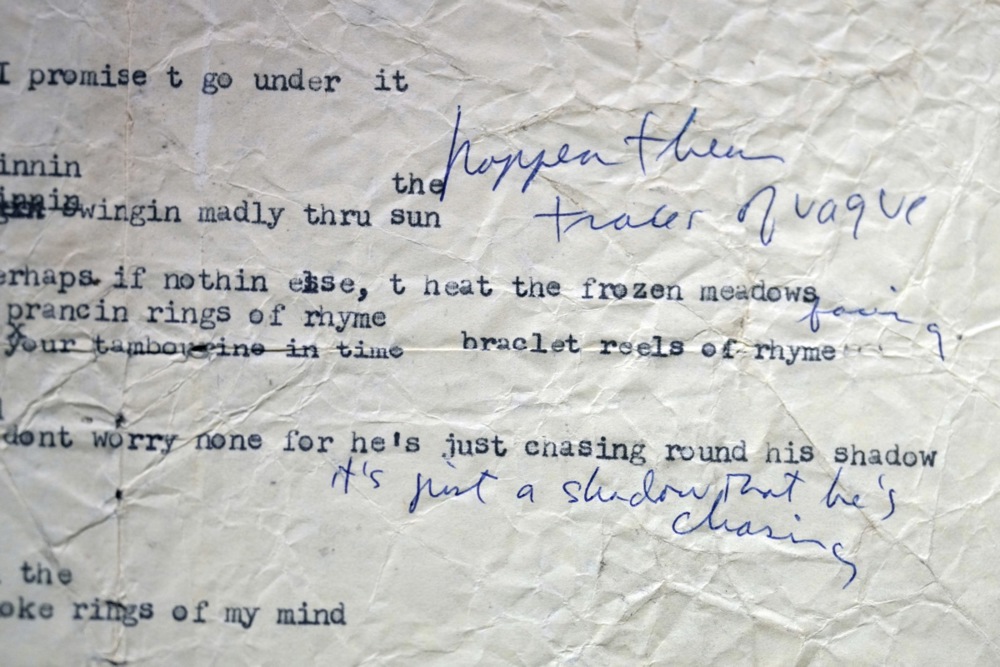 I promise t go under it
innin
the
innin
swingin madly thru sun
then
trace of vague
erhaps if nothin else, t heat the frozen meadows
prancin rings of rhyme
your tambourine in time braclet reels of rhyme
dont worry none for he's just chasing round his shadow
it's just a shadow that he's
chasing
the
oke rings of my mind